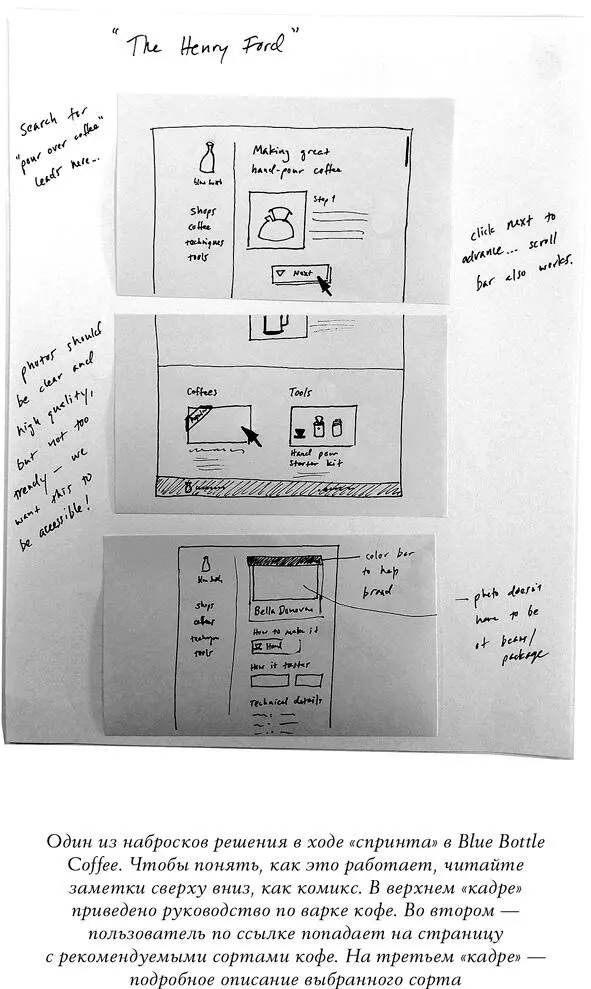 "The Henry Ford"
Search for
"pour over coffee"
leads here...
Making great
hand-pour coffee
Step 1
shops
coffee
techniques
tools
Next
click next to
advance... scroll
bar also works.
photos should
be clear and
high quality,
but not too
trendy – we
want this to
be accessible!
Coffees
Tools
Hand pour
starter kit
color bar
to help
shops
tools
Bella Donovan
How to make it
How it tastes
Technical details
– photo doesn't
have to be
of beans/
package
Один из набросков решения в ходе «спринта» в Blue Bottle
Coffee. Чтобы понять, как это работает, читайте
заметки сверху вниз, как комикс. В верхнем «кадре»
приведено руководство по варке кофе. Во втором —
пользователь по ссылке попадает на страницу
с рекомендуемыми сортами кофе. На третьем «кадре» —
подробное описание выбранного сорта